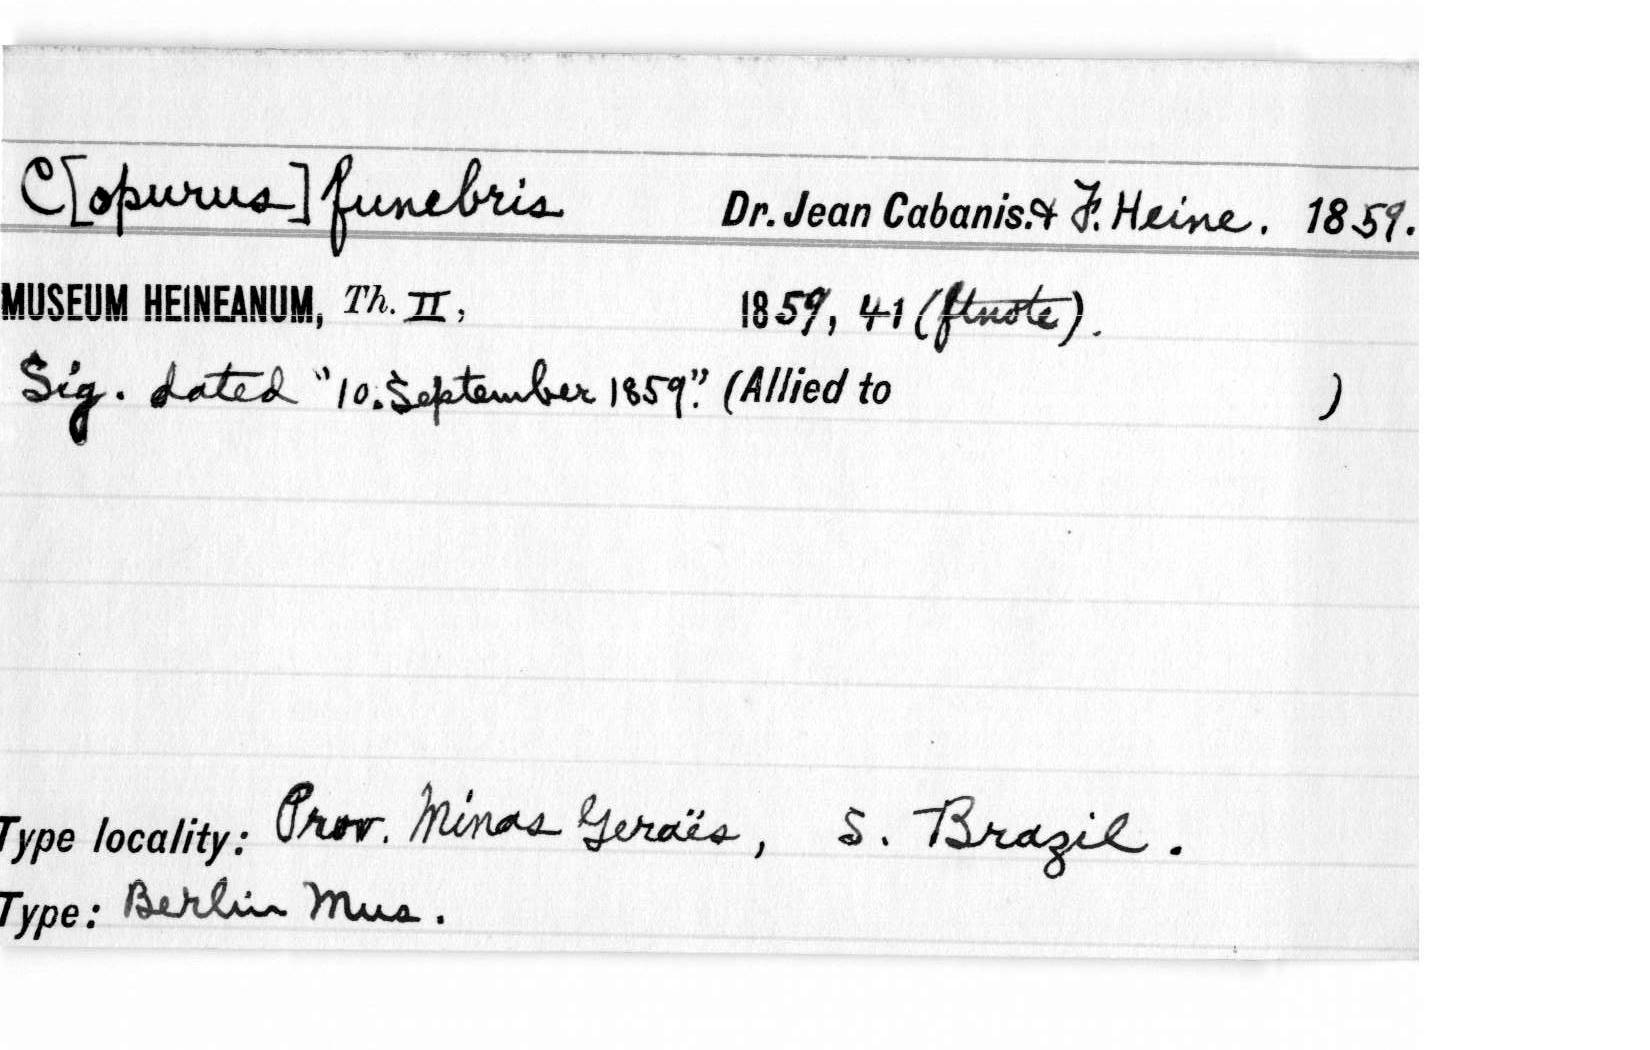 C[opurus] funebris Dr. Jean Cabanis. & F. Heine. 1859.
MUSEUM HEINEANUM, Th. II, 1859, 41 (ftnote).
Sig. dated "10. September 1859". (Allied to )
Type locality: Prov. Minas Geraës, S. Brazil.
Type: Berlin Mus.